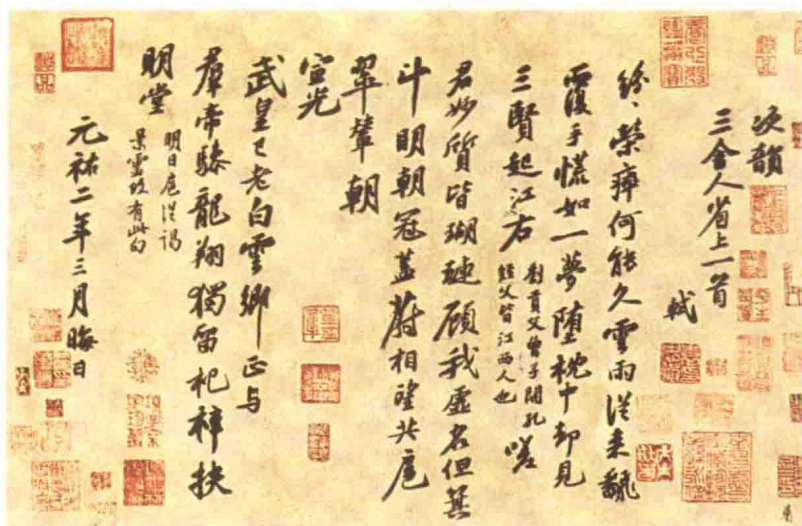 次韻
三舍人省上一首
軾
紛〻榮瘁何能久雲雨從来翻
覆手慌如一夢墮枕中却見
三賢起江右劉貢父曾子開孔
經父皆江西人也嗟
君妙質皆瑚璉顧我虛名但箕
斗明朝冠蓋蔚相望共扈
翠輦朝
宣光
武皇已老白雲鄉正与
羣帝驂龍翔獨留杞梓扶
明堂明日扈從謁
景靈故有此句
元祐二年三月晦日